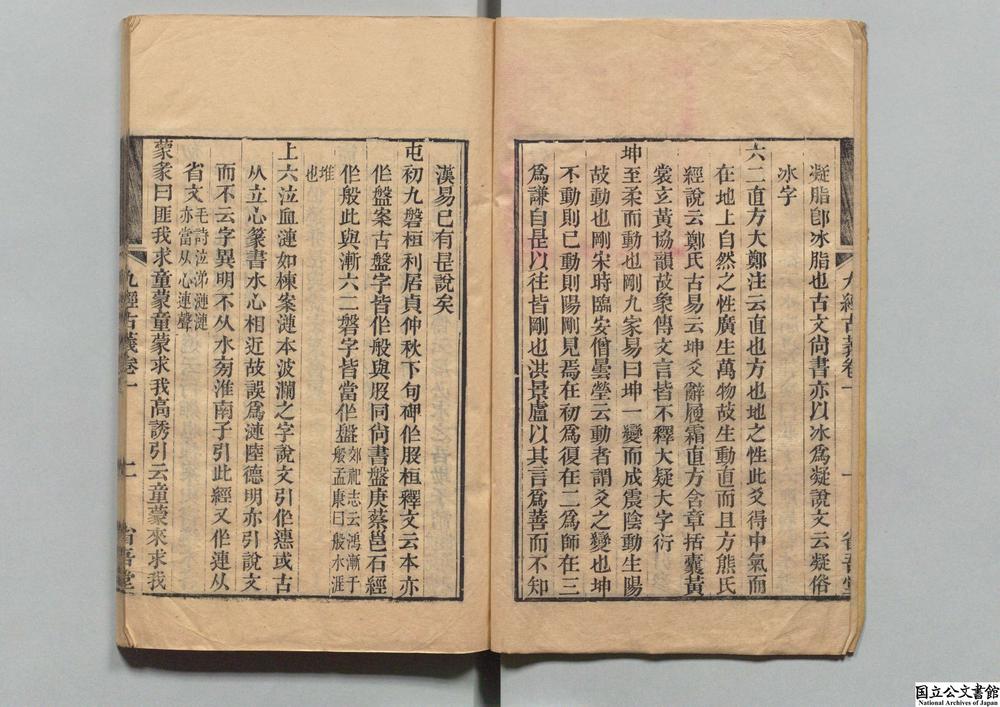 凝脂卽冰脂也古文尙書亦以冰爲凝說文云凝俗
冰字
六二直方大鄭注云直也方也地之性此爻得中氣而
在地上自然之性廣生萬物故生動直而且方熊氏
經說云鄭氏古易云坤爻辭履霜直方含章括囊黃
裳玄黃協韻故象傳文言皆不釋大疑大字衍
坤至柔而動也剛九家易曰坤一變而成震陰動生陽
故動也剛宋時臨安僧曇瑩云動者謂爻之變也坤
不動則已動則陽剛見焉在初爲復在二爲師在三
爲謙自是以往皆剛也洪景盧以其言爲善而不知
漢易已有是說矣
屯初九磐桓利居貞仲秋下旬碑作股桓釋文云本亦
作盤案古盤字皆作般與股同尙書盤庚蔡邕石經
作般此與漸六二磐字皆當作盤郊祀志云鴻漸于般孟康曰般水涯
堆也
上六泣血漣如棟案漣本波瀾之字說文引作㦁或古
从立心篆書水心相近故誤爲漣陸德明亦引說文
而不云字異明不从水旁淮南子引此經又作連从
省文毛詩泣涕漣漣亦當从心連聲
蒙彖曰匪我求童蒙童蒙求我高誘引云童蒙來求我
九經古義卷一
二
省吾堂
九經古義卷一
省吾堂
国立公文書館
National Archives of Japan